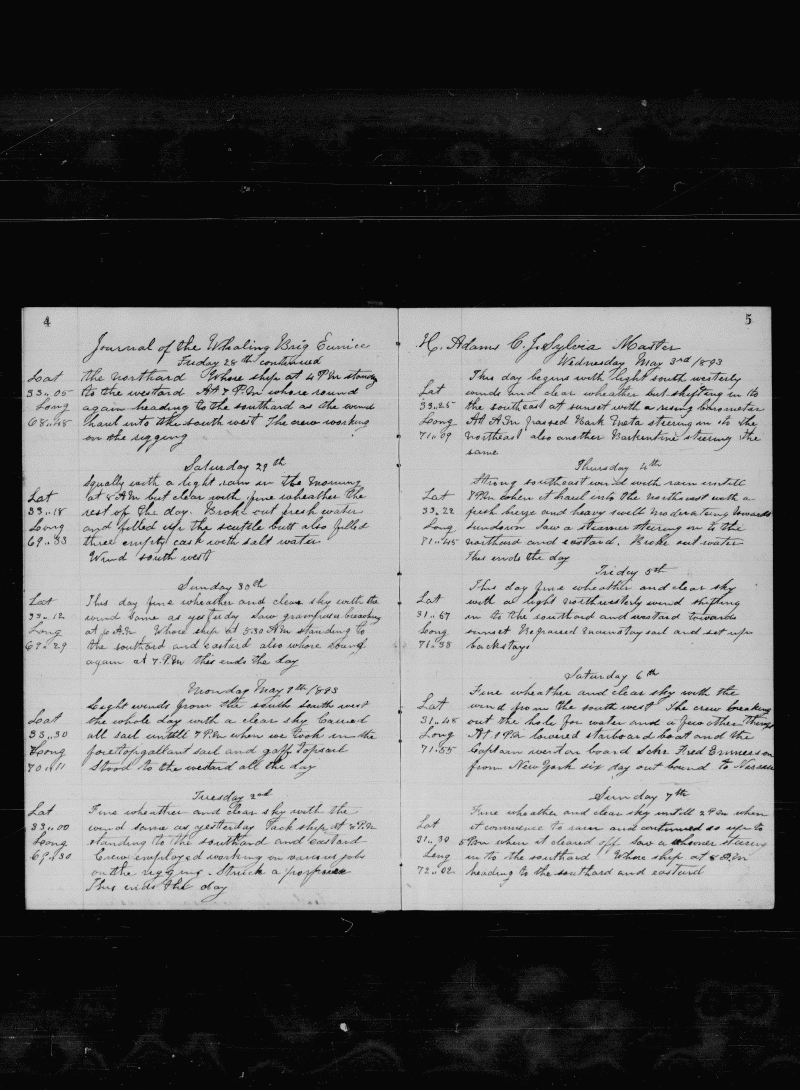 4
Journal of the Whaling Brig Eunice
Friday 28th continued
Lat the northard Whore ship at 4 P.M standing
33..05 to the westard At 7 P.M whore round
Long again heading to the southard as the wind
68..48 haul into the south west The crew working
on the rigging
Saturday 29th
Squally with a light rain in the morning
Lat at 8 A.M but clear with fine wheather the
33..18 rest of the day. Broke out fresh water
Long and filled up the scuttle butt also filled
69..33 three empty cask with salt water
Wind south west
Sunday 30th
Lat This day fine wheather and clear sky with the
33..12 wind same as yesterday saw grampuses breaching
Long at 10 A.M Whore ship at 5.30 A.M standing to
69..29 the southard and eastard also whore round
again at 7. P.M this ends the day
Monday May 1th/893
Light winds from the south south west
Lat the whole day with a clear sky Carried
33..30 all sail untill 7 P.M when we took in the
Long foretopgallant sail and gaff topsail
70..11 Stood to the westard all the day
Tuesday 2nd
Lat Fine wheather and clear sky with the
33..00 wind same as yesterday Tack ship at P.M
Long standing to the southard and Eastard
69..30 Crew employed working on various jobs
on the rigging. Struck a porpoise
This ends the day
5
H. Adams C. J. Sylvia Master
Wednesday May 3rd/893
This day begins with light south westerly
Lat winds and clear wheather but shifting in to
33..25 the southeast at sunset with a rising barometer
Long At A.M passed Bark steering in to the
71..09 Northeast also another Barkentine steering the
same
Thursday 4th
Strong southeast wind with rain untill
Lat P.M when it haul into the Northwest with a
33..22 fresh brize and heavy swell moderating towards
Long sundown Saw a steamer steering in to the
71..45 northard and eastard. Broke out water
This ends the day
Friday 5th
This day fine wheather and clear sky
Lat with a light Northwesterly wind shifting
31..57 in to the southard and westard towards
Long sunset Repaired mainstaysail and set up
71..38 backstays
Saturday 6th
Fine wheather and clear sky with the
Lat wind from the south west The crew breaking
31..48 out the hole for water and a few other things
Long At 1 P.M lowered starboard boat and the
71..55 Captain went on board Schr Fred Emmerson
from New York six day out bound to Nassau
Sunday 7th
Fine wheather and clear sky untill 2 P.M when
Lat it commence to rain and continued so up to
31..30 5 P.M when it cleared off Saw a schooner steering
Long in to the southard Whore ship at 8 P.M
72..02 heading to the southard and eastard